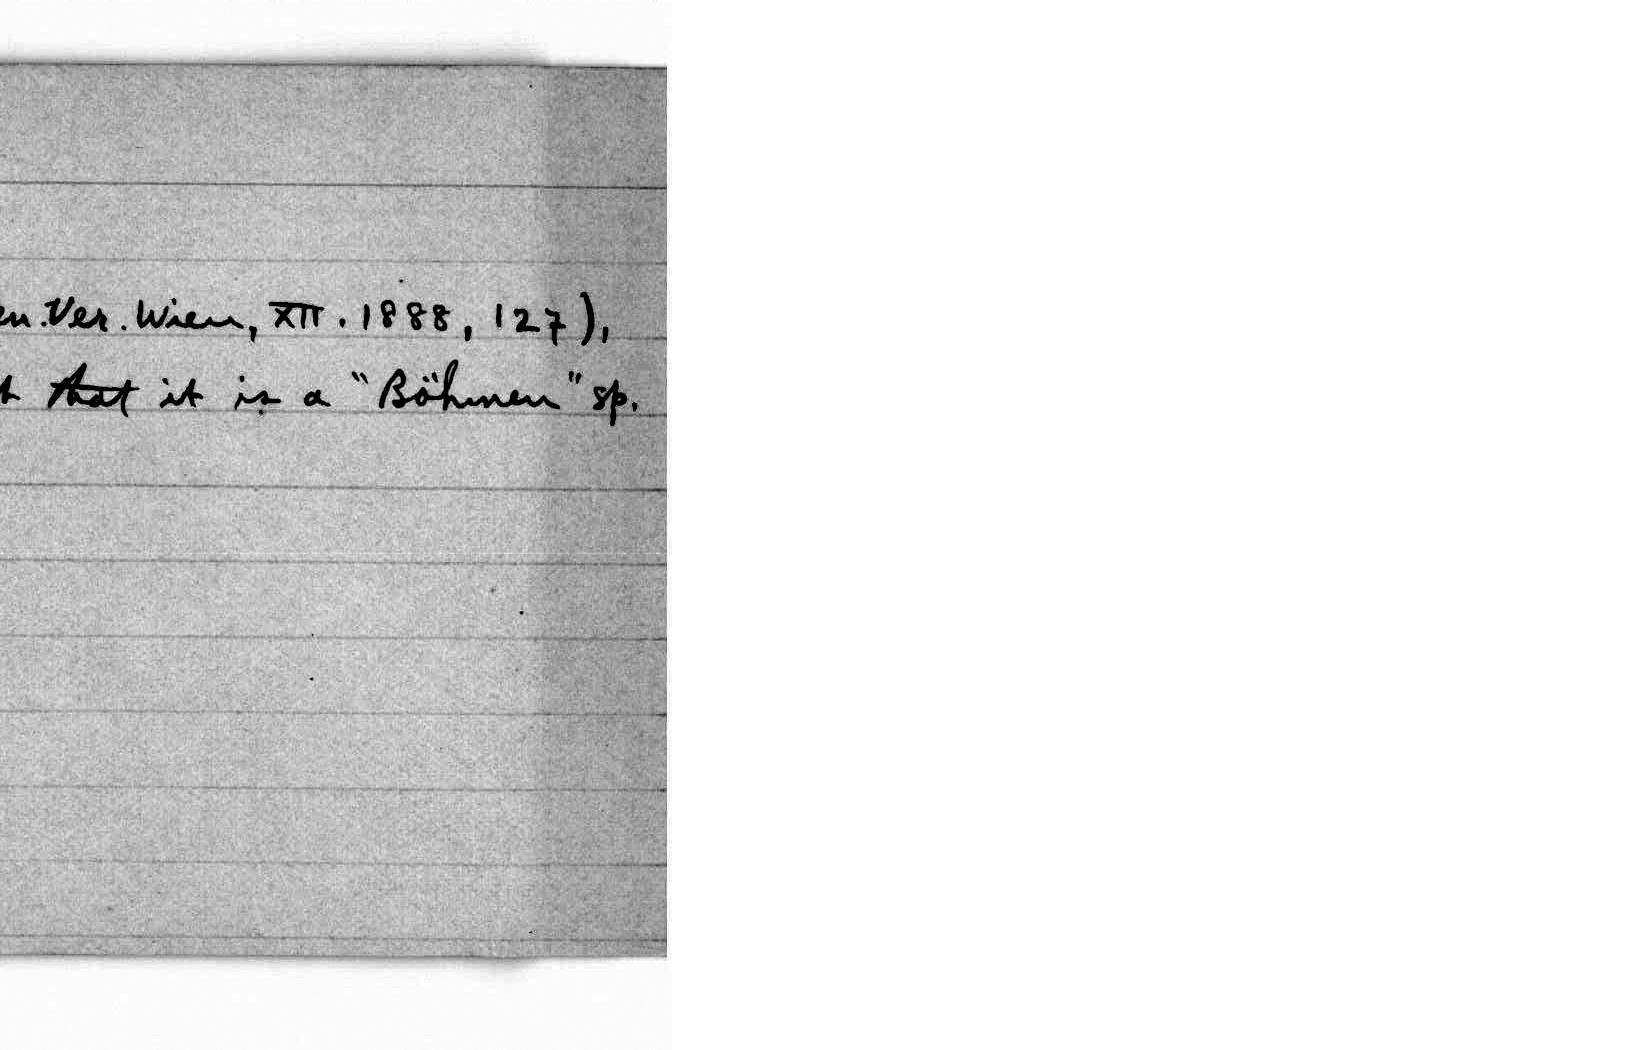 en. Ver. Wien, XII. 1888, 127),
t that it is a "Böhmen" sp.